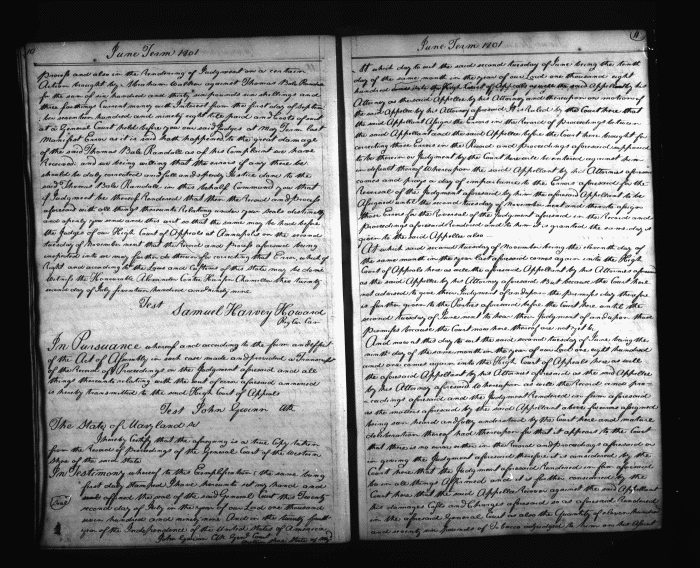 10
June Term 1801
Process and also in the rendering of Judgment on a certain
Action brought by Abraham against Thomas Beale Randall
in the sum of six hundred and thirty six pounds six shillings and
three farthings Current money with Interest from the first day of
seventeen hundred and ninety eight till paid and Costs of suit
at a General Court held before you our said Judges at May Term last
Manifest Error as it is said hath happened to the great damage
of the said Thomas Beale Randall as of his Complaint we have
Received and we being willing that the error if any there be
should be duly corrected and full and speedy Justice done to the
said Thomas Beale Randall in this behalf Command you that
if Judgment be thereof Rendered that then the Record and process
aforesaid with all things thereunto Relating under your seals distinctly
and openly you send and this writ so that the same may be had before
the Judges of our High Court of Appeals at Annapolis on the second
tuesday of November next that the Record and process aforesaid being
inspected we may further do therein for correcting that Error, which of
Right and according to the Laws and Customs of this State may be done
Witness the Honourable Alexander Contee Hanson Chancellor this twenty
second day of July seventeen hundred and ninety nine
Test
Samuel Harvey Howard
Reg Cur Can
In Pursuance whereof and according to the form and effect
of the Act of Assembly in such case made and provided a Transcript
of the Record of Proceedings in the Judgment aforesaid and all
things thereunto relating with the writ of error aforesaid annexed
is hereby transmitted to the said High Court of Appeals
Test John Gwinn Clk
The State of Maryland Ss
I hereby Certify that the aforegoing is a true Copy taken
from the Record of proceedings of the General Court of the Western
Shore of the same state
In Testimony whereof to this Exemplification the same being
first duly stamped I have hereunto set my hand and
seal affixed the seal of the said General Court this twenty
second day of July in the year of our Lord one thousand
seven hundred and ninety nine And in the twenty fourth
year of the Independence of the United States of America
John Gwinn Clk Genl Court
11
June Term 1801
At which day to wit the said second tuesday of June being the tenth
day of the same month in the year of our Lord one thousand eight
hundred the High Court of Appeals as well the said Appellant by his
Attorney as the said Appellee by his Attorney and thereupon on motion of
the said Appellee by his Attorney aforesaid It is Ruled by the Court here that
the said Appellant Assign the Errors in the Record of Proceedings between
the said Appellant and the said Appellee before the Court here brought for
correcting those Errors in the Record and Proceedings aforesaid supposed
to be therein or Judgment by the Court here will be entered against him
in default thereof Whereupon the said Appellant by his Attorney aforesaid
comes and prays a day of imparlance to the Errors aforesaid for the
Reversal of the Judgment aforesaid by him the aforesaid Appellant to be
Assigned until the second tuesday of November next and thereto Assign
those Errors for the Reversal of the Judgment aforesaid in the Record and
Proceedings aforesaid Rendered and to him it is granted the same day is
given to the said Appellee also
At which said second Tuesday of November being the eleventh day of
the same month in the year last aforesaid comes again into the High
Court of Appeals here as well the aforesaid Appellant by his Attorney aforesaid
as the said Appellee by his Attorney aforesaid But because the Court here
not advised to give their Judgment of and upon the premises day therefore
is further given to the Parties aforesaid before the Court here until the
second tuesday of June next to hear their Judgment of and upon their
Premises because the Court now here thereof are not yet &c
And now at this day to wit the said second tuesday of June being the
ninth day of the same month in the year of our Lord one eight hundred
and one comes again into the High Court of Appeals here as well
the aforesaid Appellant by his Attorney aforesaid as the said Appellee
by his Attorney aforesaid Whereupon as well the Record and pro-
ceedings aforesaid and the Judgment Rendered in form aforesaid
as the matters aforesaid by the said Appellant above for errors assigned
being seen heard and fully understood by the Court here and mature
deliberation thereof had therefore for that it appears to the Court
that there is no error either in the Record and proceedings aforesaid or
in giving the Judgment aforesaid therefore it is considered by the
Court here that the Judgment aforesaid Rendered in form aforesaid
be in all things Affirmed and it is further considered by the
Court here that the said Appellee Recover against the said Appellant
his damages Costs and Charges aforesaid so as aforesaid Rendered
in the aforesaid General Court as also the Quantity of
and seventy six Pounds of Tobacco adjudged to him on this Appeal